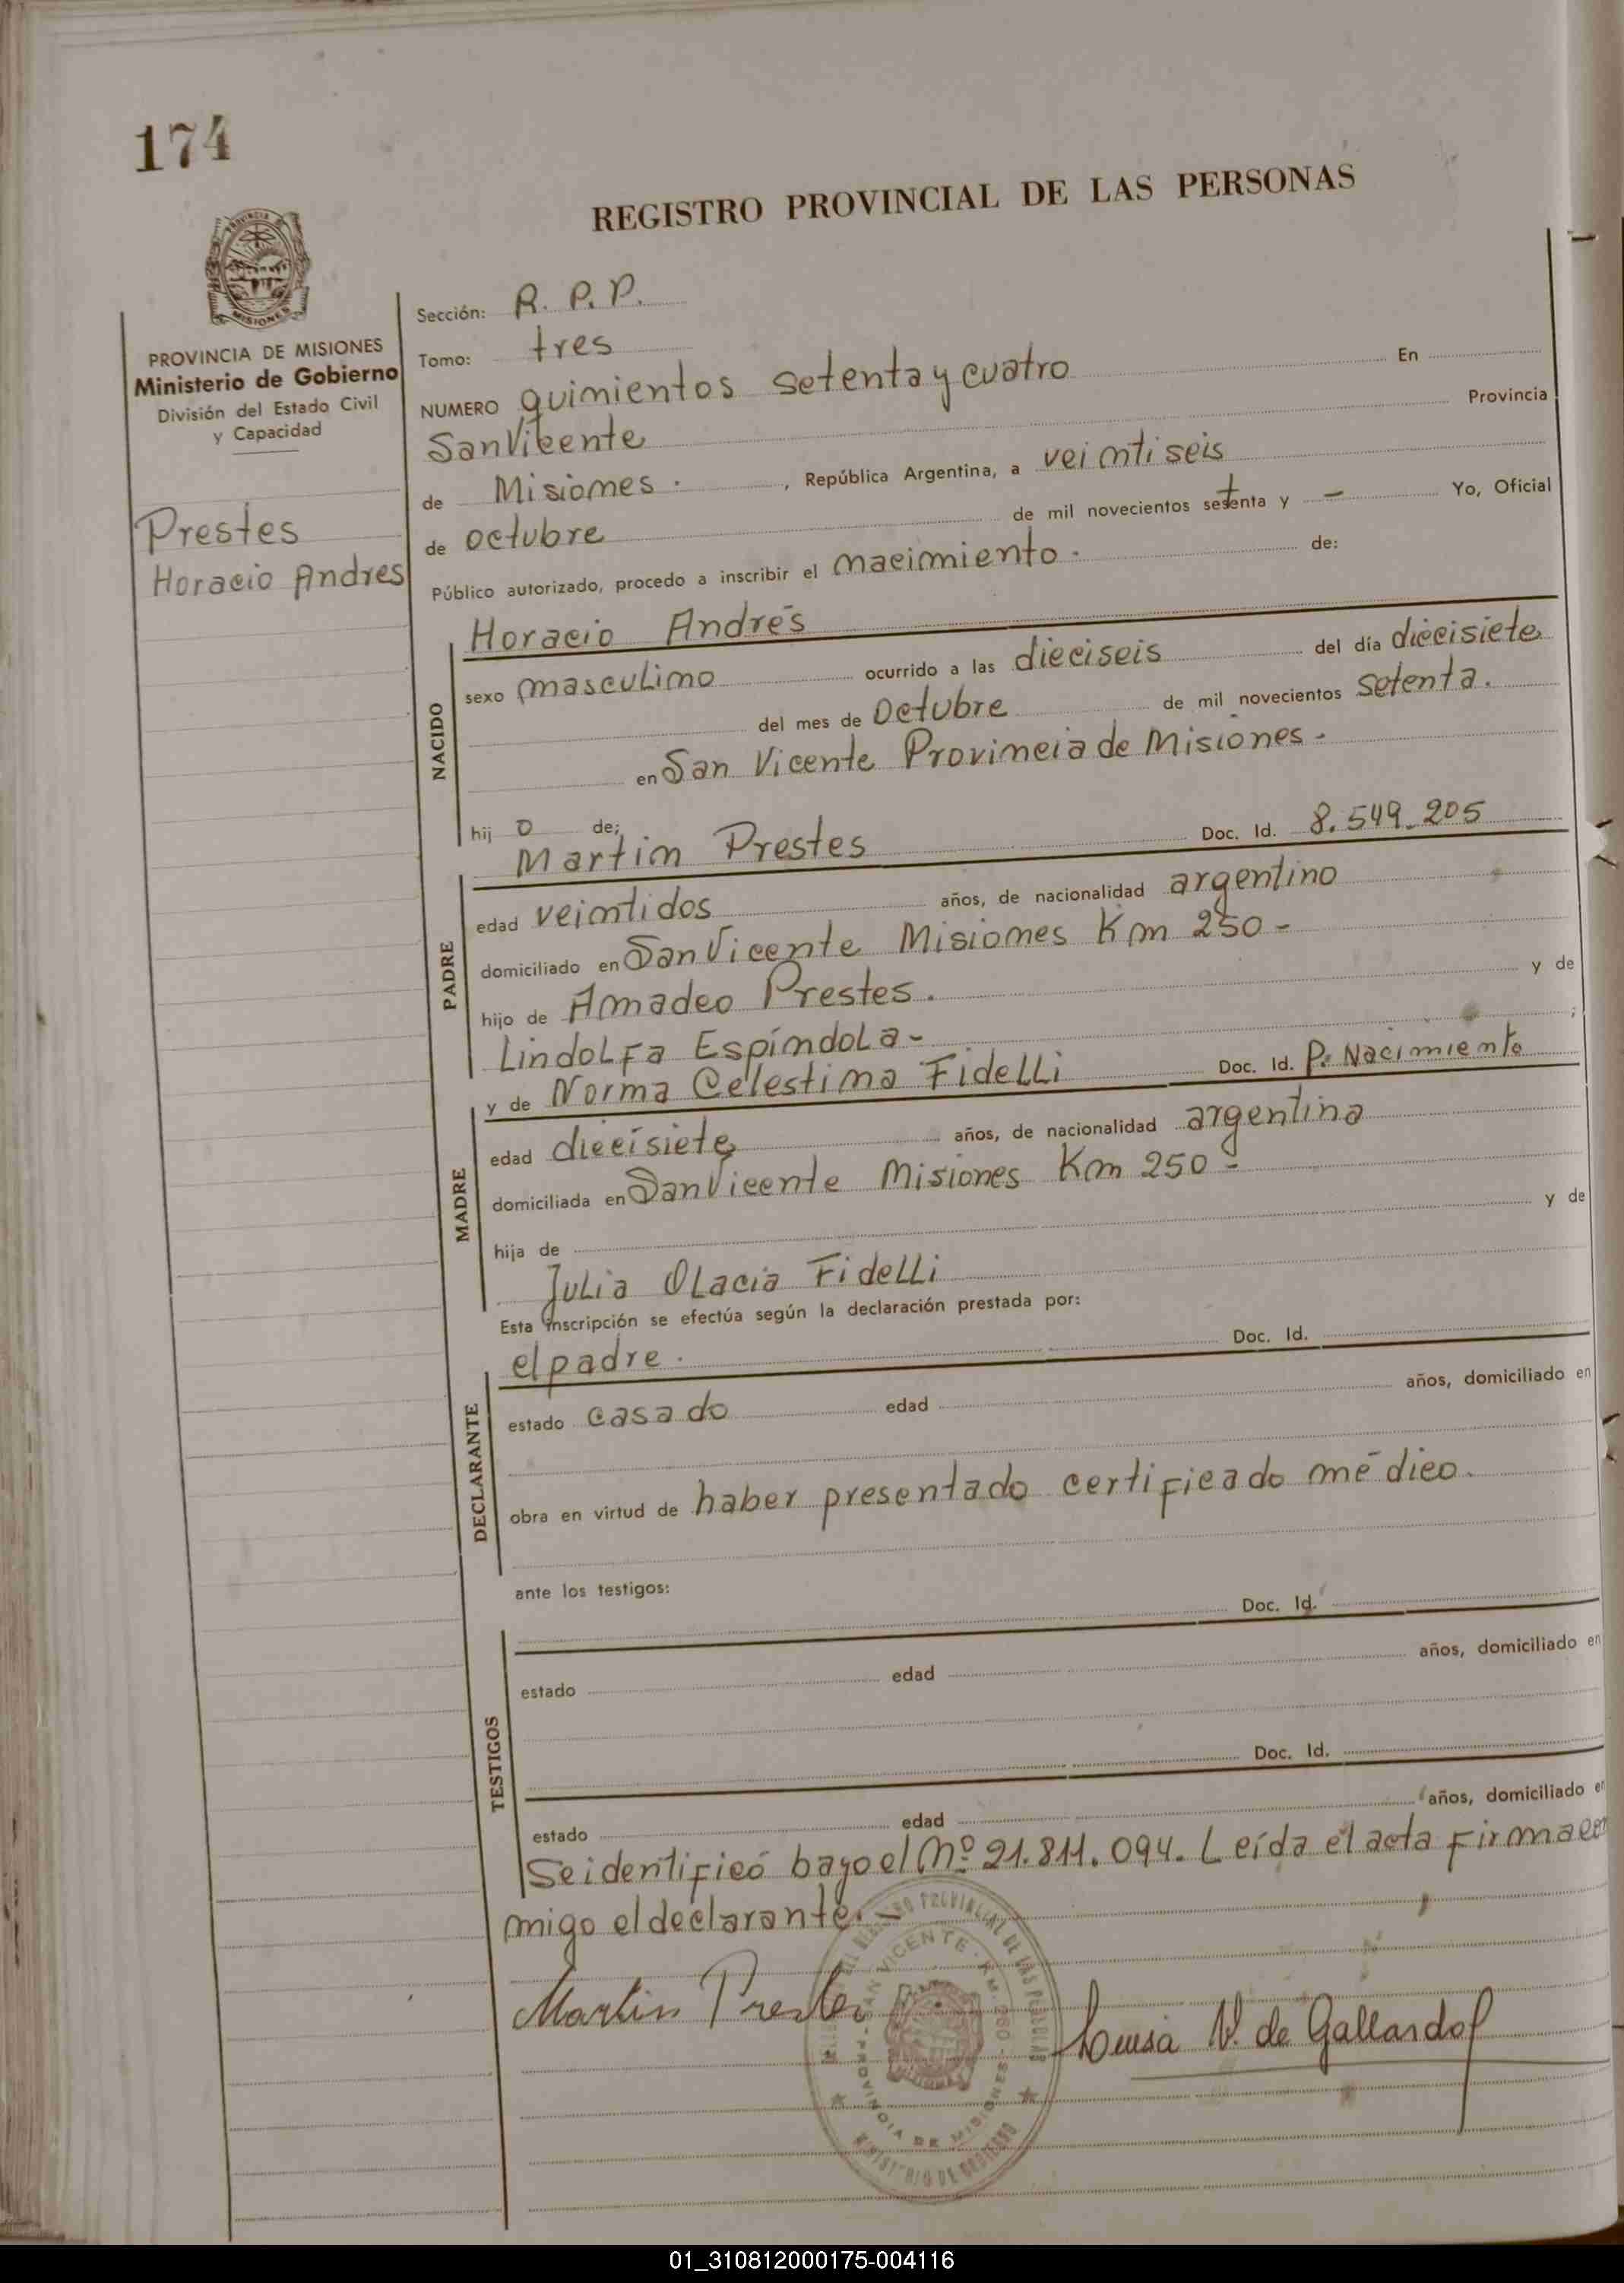 174
REGISTRO PROVINCIAL DE LAS PERSONAS
PROVINCIA
MISIONES
PROVINCIA DE MISIONES
Ministerio de Gobierno
División del Estado Civil
y Capacidad
Prestes
Horacio Andres
Sección: R. P. P.
Tomo: tres
NUMERO quimientos setenta y cuatro En
San Vicente Provincia
de Misiones. , República Argentina, a veintiseis
de octubre de mil novecientos setenta y — Yo, Oficial
Público autorizado, procedo a inscribir el nacimiento. de:
NACIDO
Horacio Andrés
sexo masculino ocurrido a las dieciseis del día diecisiete
del mes de Octubre de mil novecientos setenta.
en San Vicente Provincia de Misiones.
hij o de;
PADRE
Martin Prestes Doc. Id. 8.549.205
edad veintidos años, de nacionalidad argentino
domiciliado en San Vicente Misiones Km 250 -
hijo de Amadeo Prestes. y de
Lindolfa Espíndola - ;
MADRE
y de Norma Celestina Fidelli Doc. Id. P. Nacimiento
edad diecisiete años, de nacionalidad argentina
domiciliada en San Vicente Misiones Km 250 -
hija de y de
Julia Olacia Fidelli
Esta inscripción se efectúa según la declaración prestada por:
DECLARANTE
el padre. Doc. Id.
estado casado edad años, domiciliado en
obra en virtud de haber presentado certificado médico.
ante los testigos:
TESTIGOS
Doc. Id.
estado edad años, domiciliado en
Doc. Id.
estado edad años, domiciliado en
Se identificó bajo el Nº 21.811.094. Leída el acta firma con
migo el declarante. -
Martin Prestes
Luisa V. de Gallardo
REGISTRO PROVINCIAL DE LAS PERSONAS
SAN VICENTE - KM. 260 - PROVINCIA DE MISIONES
MINISTERIO DE GOBIERNO
01_310812000175-004116